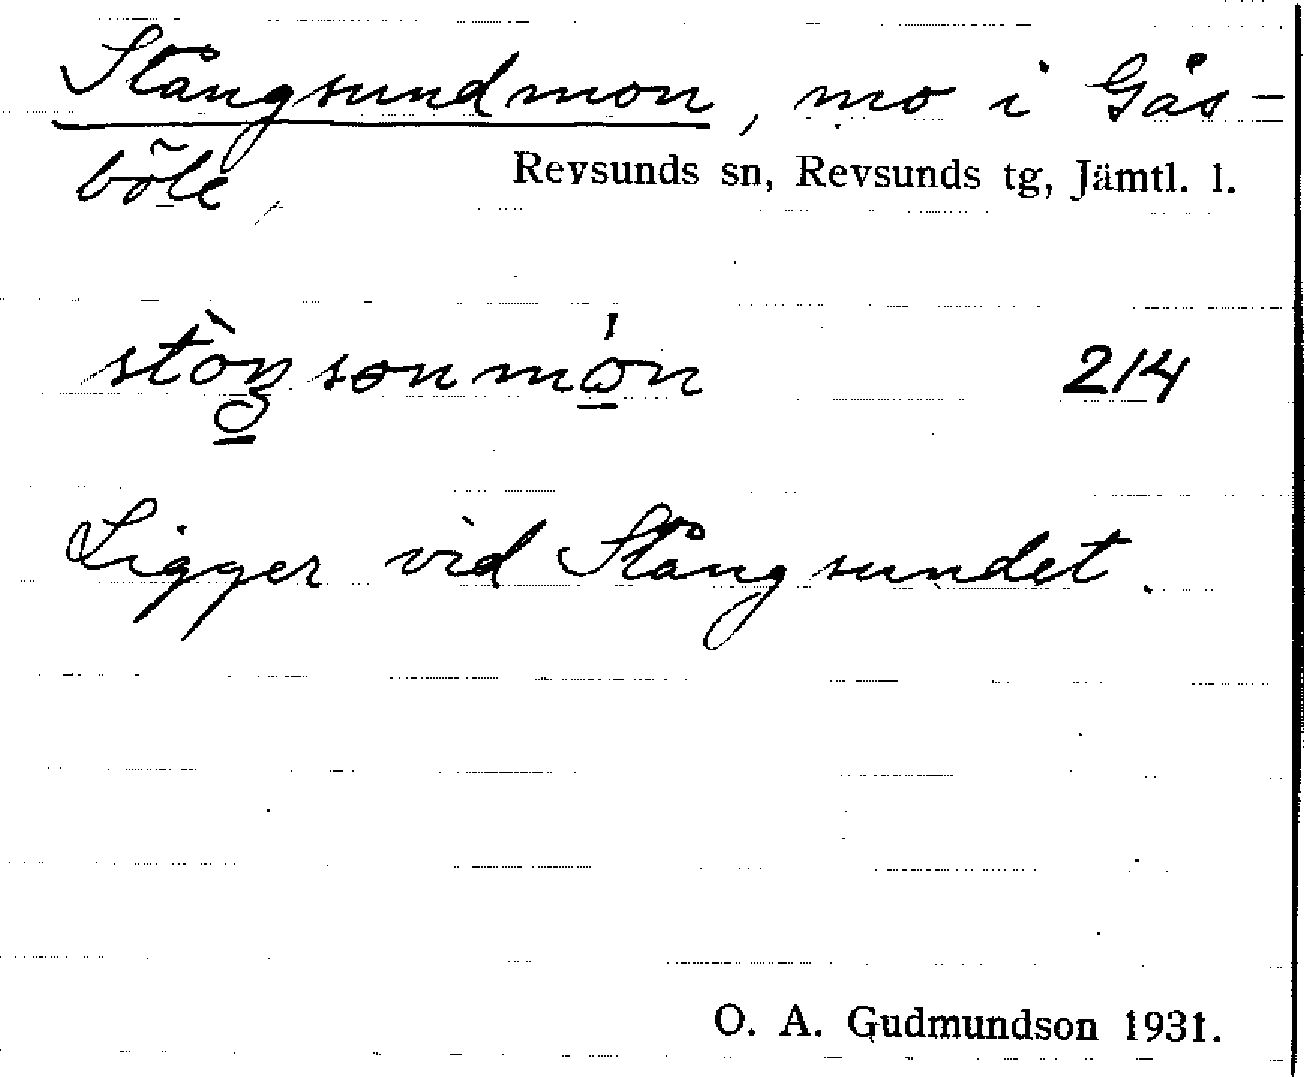 Stångsundmon, mo i Gås-
böle,
Revsunds sn, Revsunds tg, Jämtl. l.
214
Ligger vid Stångsundet.
O. A. Gudmundson 1931.